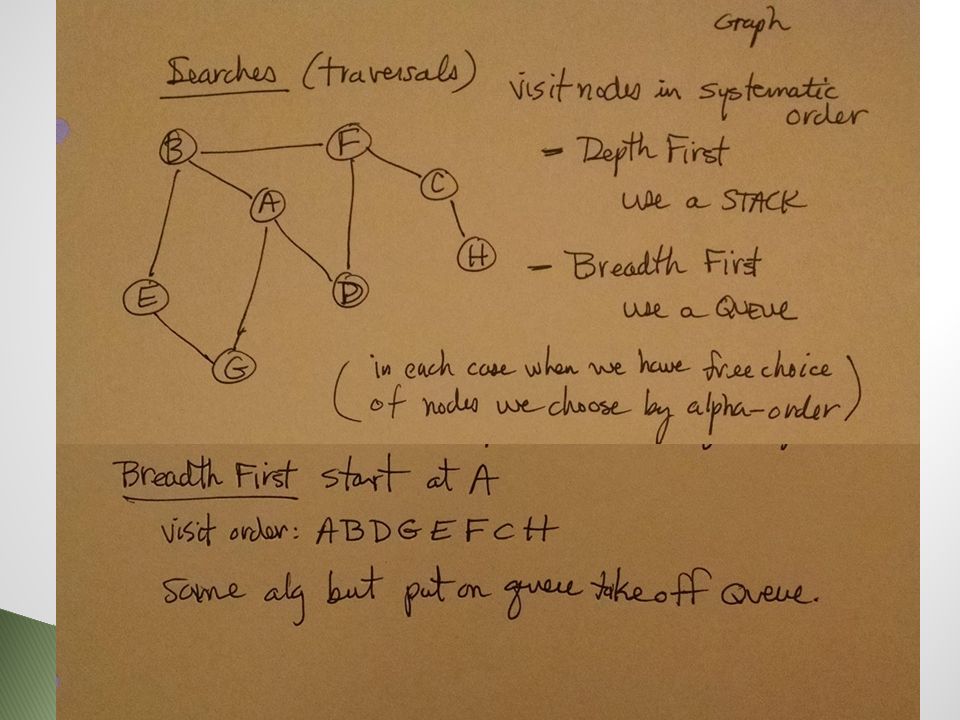 Graph
Searches (traversals)
visit nodes in systematic
order
- Depth First
use a STACK
- Breadth First
use a QUEUE
(in each case when we have free choice
of nodes we choose by alpha-order)
B
F
A
C
H
E
D
G
Breadth First start at A
visit order: A B D G E F C H
Same alg but put on queue take off Queue.